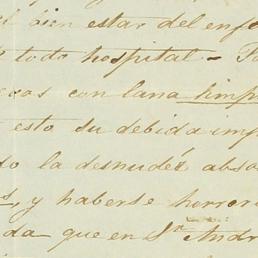 l bien estar del enf
todo hospital - 
con lana limp
esto su debida imp
do la desnudéz abso
s, y haberse horror
da que en Sn. Andr